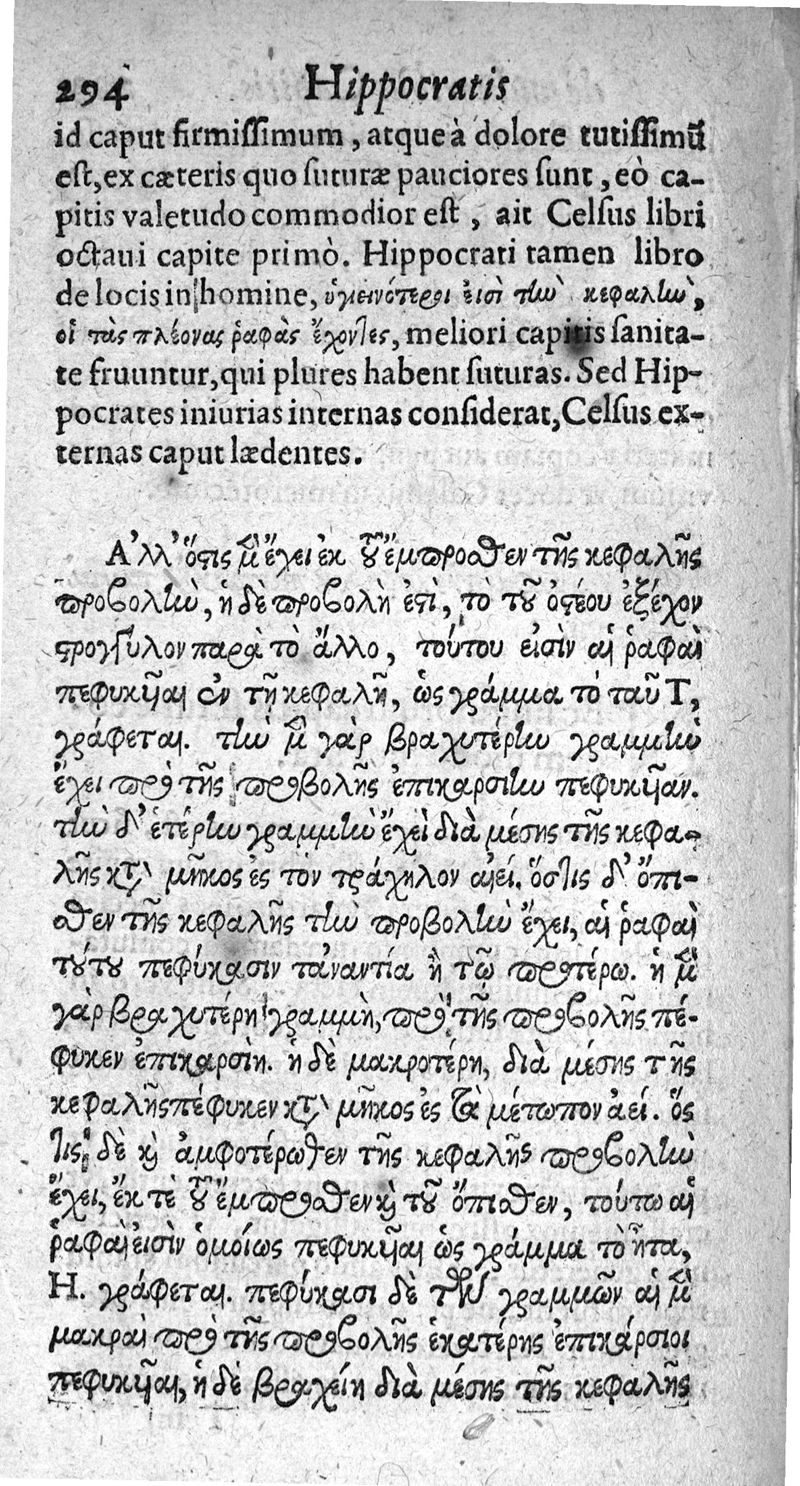 294 Hippocratis
id caput firmissimum, atque à dolore tutissimū
est, ex cæteris quo suturæ pauciores sunt, eò ca-
pitis valetudo commodior est, ait Celsus libri
octaui capite primò. Hippocrati tamen libro
de locis in homine, ὑγιεινότεροι εἰσὶ τὴν κεφαλὴν,
οἱ τὰς πλέονας ῥαφὰς ἔχοντες, meliori capitis sanita-
te fruuntur, qui plures habent suturas. Sed Hip-
pocrates iniurias internas considerat, Celsus ex-
ternas caput lædentes.
Αλλ' ὅστις μὲν ἔχει ἐκ τοῦ ἔμπροσθεν τῆς κεφαλῆς
προβολὴν, ἡ δὲ προβολὴ ἐστὶ, τὸ τοῦ ὀστέου ἐξέχον
στρογγύλον παρὰ τὸ ἄλλο, τούτου εἰσὶν αἱ ῥαφαὶ
πεφυκυῖαι ἐν τῇ κεφαλῇ, ὡς γράμμα τὸ ταῦ Τ,
γράφεται. τὴν μὲν γὰρ βραχυτέρην γραμμὴν
ἔχει πρὸ τῆς προβολῆς ἐπικαρσίην πεφυκυῖαν.
τὴν δ' ἑτέρην γραμμὴν ἔχει διὰ μέσης τῆς κεφα-
λῆς κατὰ μῆκος ἐς τὸν τράχηλον αἰεί. ὅστις δ' ὄπι-
σθεν τῆς κεφαλῆς τὴν προβολὴν ἔχει, αἱ ῥαφαὶ
τούτου πεφύκασιν τἀναντία ἢ τῷ προτέρῳ. ἡ μὲν
γὰρ βραχυτέρη γραμμὴ, πρὸ τῆς προβολῆς πέ-
φυκεν ἐπικαρσίη. ἡ δὲ μακροτέρη, διὰ μέσης τῆς
κεφαλῆς πέφυκεν κατὰ μῆκος ἐς τὸ μέτωπον ἀεί. ὅς
τις δὲ καὶ ἀμφοτέρωθεν τῆς κεφαλῆς προβολὴν
ἔχει, ἔκ τὲ τοῦ ἔμπροσθεν καὶ τοῦ ὄπισθεν, τούτῳ αἱ
ῥαφαὶ εἰσὶν ὁμοίως πεφυκυῖαι ὡς γράμμα τὸ ἦτα,
Η. γράφεται. πεφύκασι δὲ τῶν γραμμῶν αἱ μὲν
μακραὶ πρὸ τῆς προβολῆς ἑκατέρης ἐπικάρσιοι
πεφυκυῖαι, ἡ δὲ βραχείη διὰ μέσης τῆς κεφαλῆς